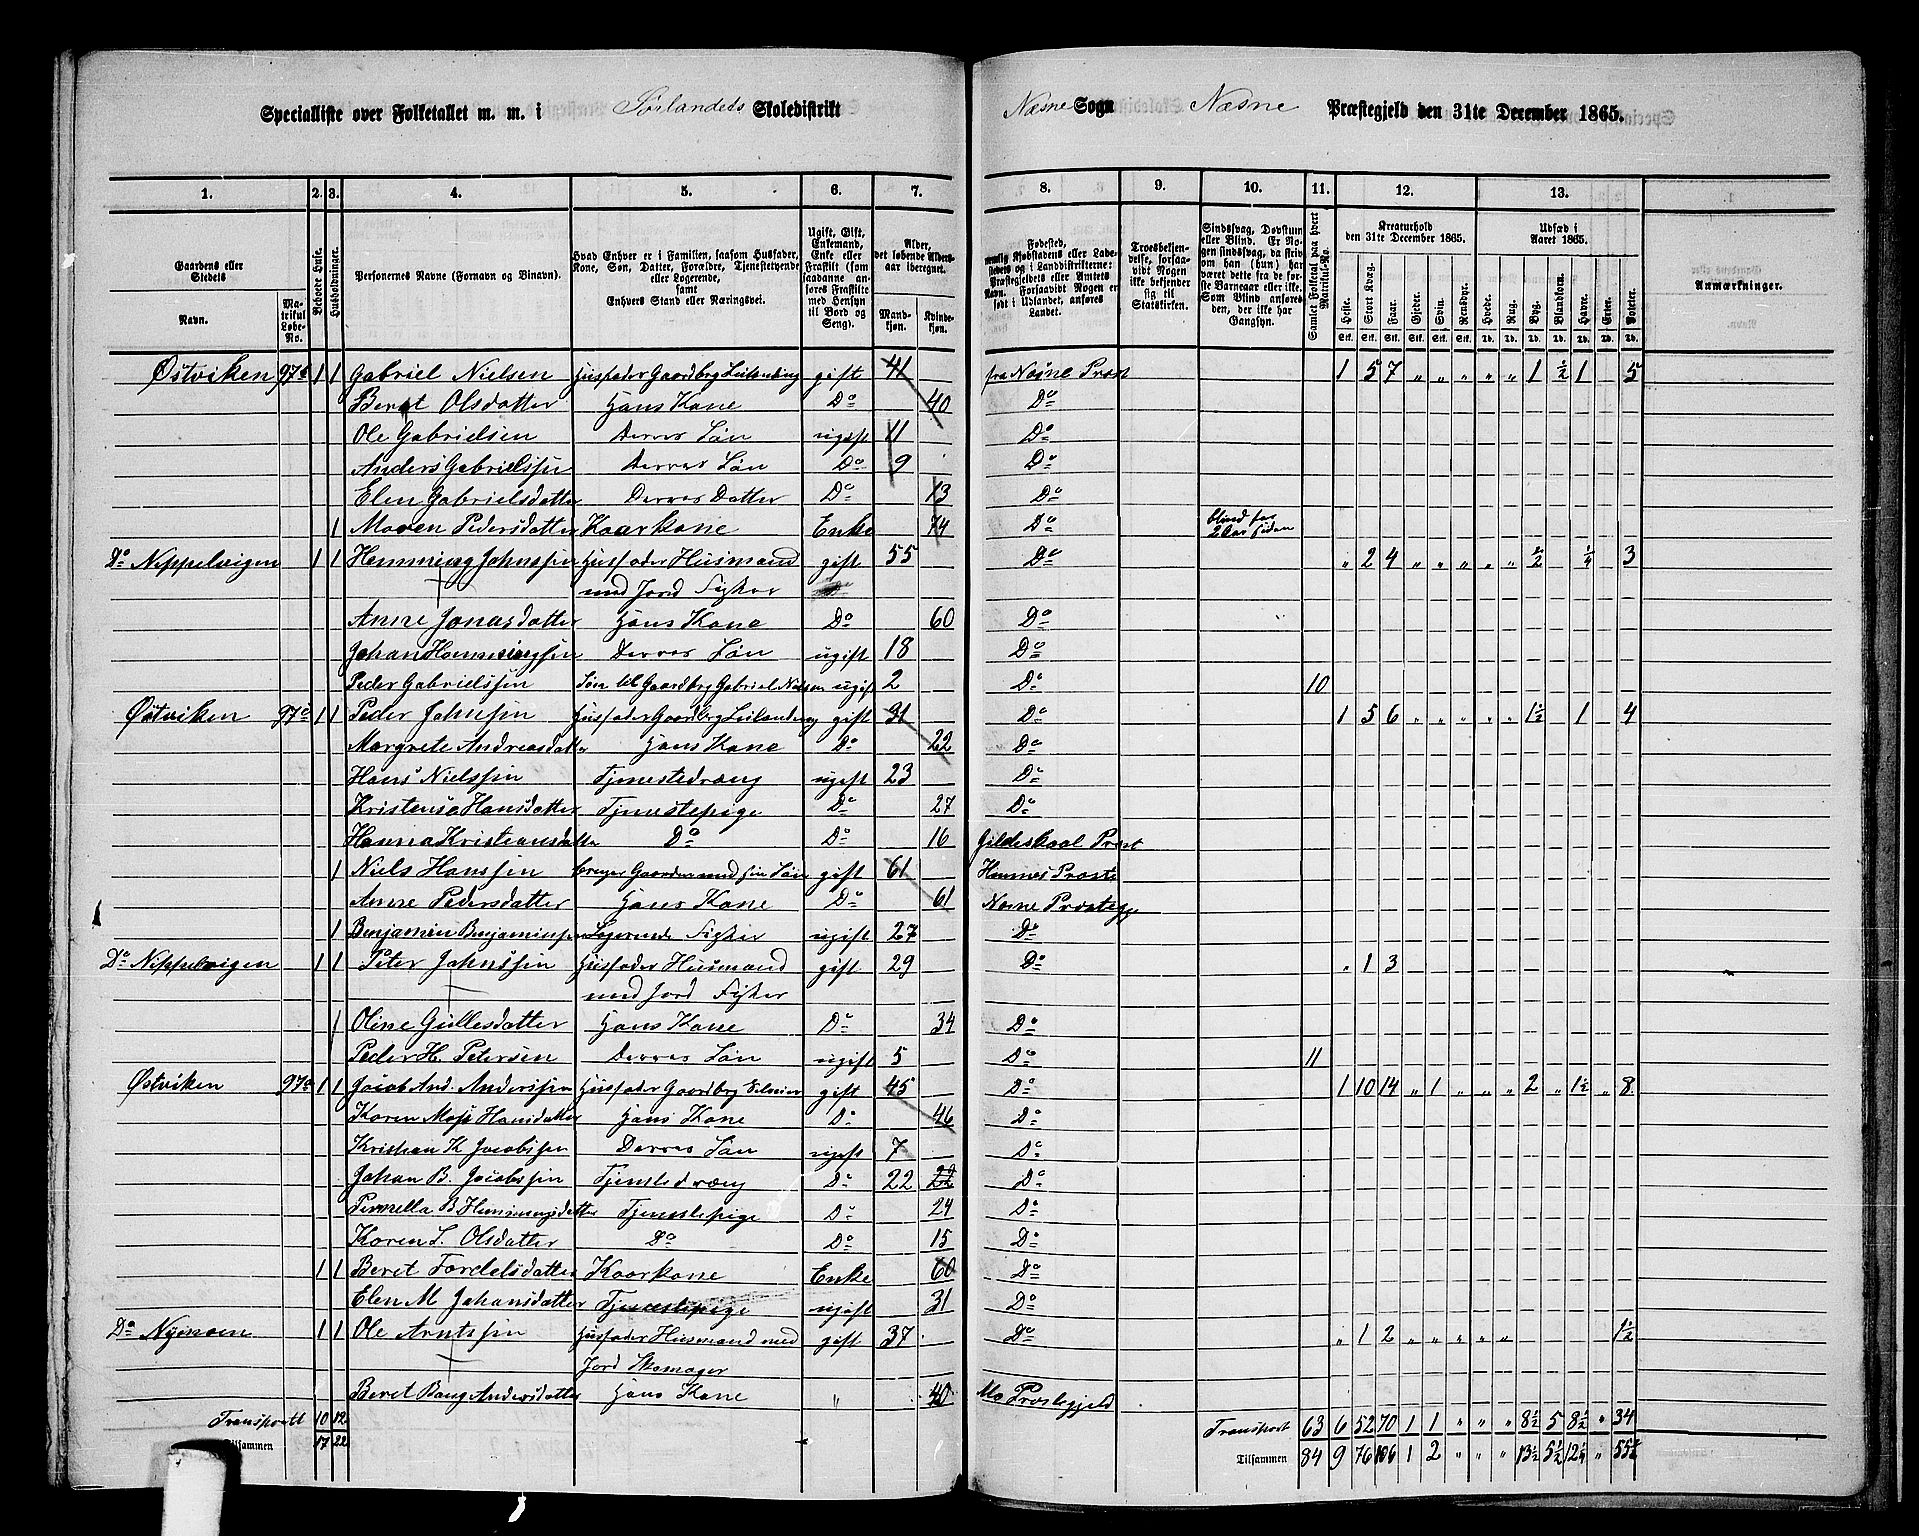 Specialliste over Folketallet m. m. i Sørlandets Skoledistrikt Næsne Sogn Næsne Præstegjeld den 31te December 1865.
1. 2. 3. 4. 5. 6. 7. 8. 9. 10. 11. 12. 13. 1.
Gaardens eller Stedets Navn. Matrikul Løbe-No. Beboede Huse. Husholdninger. Personernes Navne (Fornavn og Binavn). Hvad Enhver er i Familien, saasom Husfader, Kone, Søn, Datter, Forældre, Tjenestetyende eller Logerende, samt Enhvers Stand eller Næringsvei. Ugift, Gift, Enkemand, Enke eller Fraskilt (som saadanne anføres Fraskilte med Hensyn til Bord og Seng). Alder, det løbende Aldersaar iberegnet. Mandkjøn. Kvindekjøn.
Troesbekjendelse, forsaavidt Nogen ikke bekjender sig til Statskirken. Samlet Folketal paa hvert Matrikul-No. Kreaturhold den 31te December 1865. Udsæd i Aaret 1865. Anmærkninger.
Heste. Stort Kvæg. Faar. Gjeder. Svin. Rensdyr. Hvede. Rug. Byg. Blandkorn. Havre. Erter. Poteter.
Østviken 97 1 1 Gabriel Nielsen Husfader Gaardbrg Leilending gift 41 fra Næsne Præst 1 5 7 „ „ „ „ „ 1 ½ 1 5
Beret Olsdatter Hans Kone Do 40 Do
Ole Gabrielsen Derres Søn ugift 11 Do
Anders Gabrielssen Derres Søn Do 9 Do
Elen Gabrielsdatter Derres Datter Do 13 Do
1 Maren Pedersdatter Kaarkone Enke 74 Do blind for 2 Aar siden
Do Nippelvigen 1 1 Hemming Johnssen Husfader Husmand gift 55 Do „ 2 4 „ „ „ „ „ ½ ¼ 3
med Jord Fisker
Anne Jonasdatter Hans Kone Do 60 Do
Johan Hemmingsen Derres Søn ugift 18 Do
Peder Gabrielssen Søn til Gaardbrg Gabriel Nielsen ugift 2 Do 10
Østviken 97 1 1 Peder Johnsen Husfader Gaardbrg Leilending gift 31 Do 1 5 6 „ „ „ „ „ 1½ 1 4
Margrete Andreasdatter Hans Kone Do 22 Do
Hans Nielssen Tjenestedreng ugift 23 Do
Kristensa Hansdatter Tjenestepige Do 27 Do
Hanna Kristiansdatter Do Do 16 Gildeskaal Præst
1 Niels Hanssen bruger Gaarden med sin Søn gift 61 Hemnes Præste
Anne Pedersdatter Hans Kone Do 61 Næsne Præstegj
1 Benjamin Benjaminsen Logerende Fisker ugift 27 Do
Do Nippelvigen 1 1 Peter Johnssen Husfader Husmand gift 29 Do „ 1 3
med Jord Fisker
1 Oline Gullesdatter Hans Kone Do 34 Do
Peder H. Petersen Derres Søn ugift 5 Do 11
Østviken 97a 1 1 Jacob And. Anderssen Husfader Gaardbrg Selveier gift 45 Do 1 10 14 „ 1 „ „ „ 2 „ 1½ „ 8
Karen Hansdatter Hans Kone Do 46 Do
Kristian K Jacobssen Derres Søn ugift 7 Do
Johan B. Jacobssen Tjenestedreng Do 22 22 Do
Pernella B Hemmingsdatter Tjenestepige Do 24 Do
Karen L. Olsdatter Do Do 15 Do
1 1 Beret Tordelsdatter Kaarkone Enke 60 Do
Elen M Johansdatter Tjenestepige ugift 31 Do
Do Nymoen 1 1 Ole Arntssen Husfader Husmand med gift 37 Do „ 1 2 „ „ „ „ „ 1½
Jord Skomager
Beret Andersdatter Hans Kone „ 40 Mo Præstegjeld
Transportt 10 12 Transport 63 6 52 70 1 1 „ „ „ 8½ 5 8½ „ 34
Tilsammen 17 22 Tilsammen 84 9 76 106 1 2 „ „ „ 13½ 5½ 12¼ „ 55½